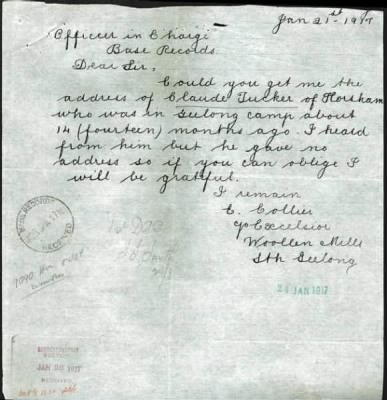 Jan 21st 1917
Officer in Charge
Base Records
Dear Sir,
Could you get me the
address of Claude Tucker of Horsham
who was in Geelong camp about
14 (fourteen) months ago. I heard
from him but he gave no
address so if you can oblige I
will be grateful.
I remain
E. Collier
c/o Excelsior
Woollen Mills
Sth Geelong
24 JAN 1917
JAN 1917